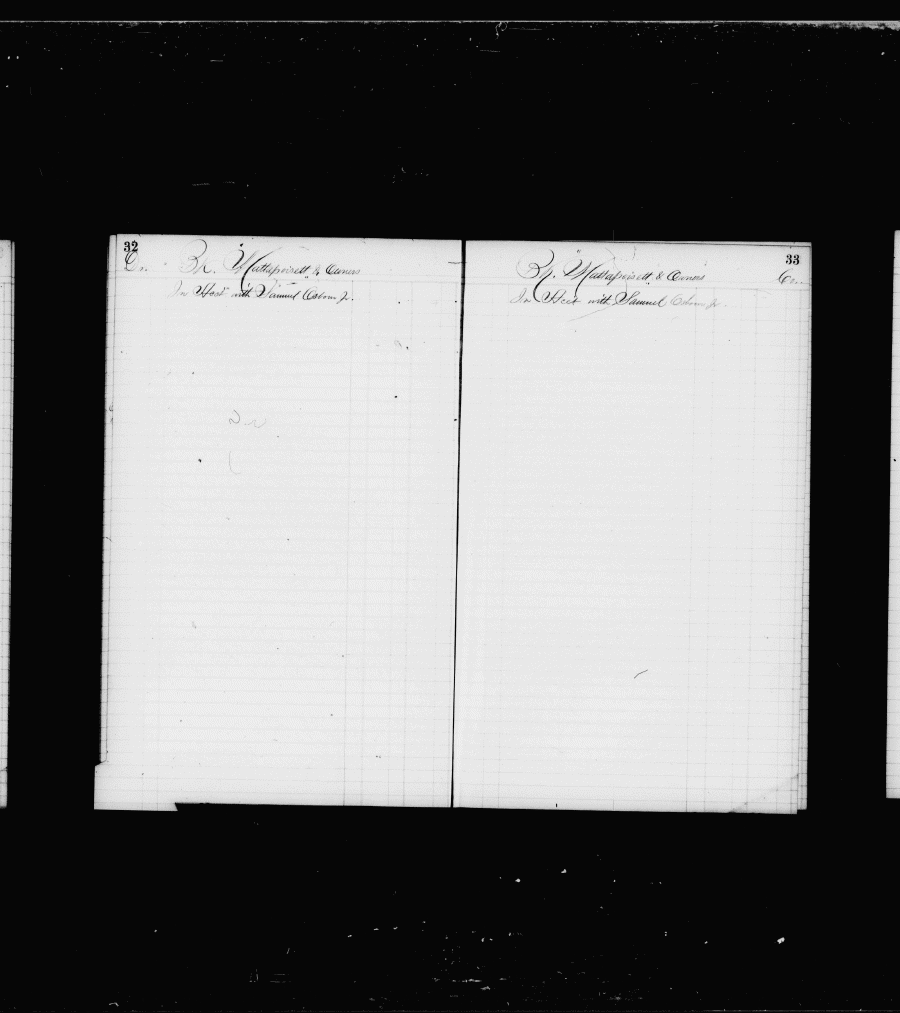 32
Dr. Bk. "Mattapoisett & Owners
In Acct with Samuel Osborn Jr.
33
Bk. "Mattapoisett & Owners Cr.
In Acct with Samuel Osborn Jr.